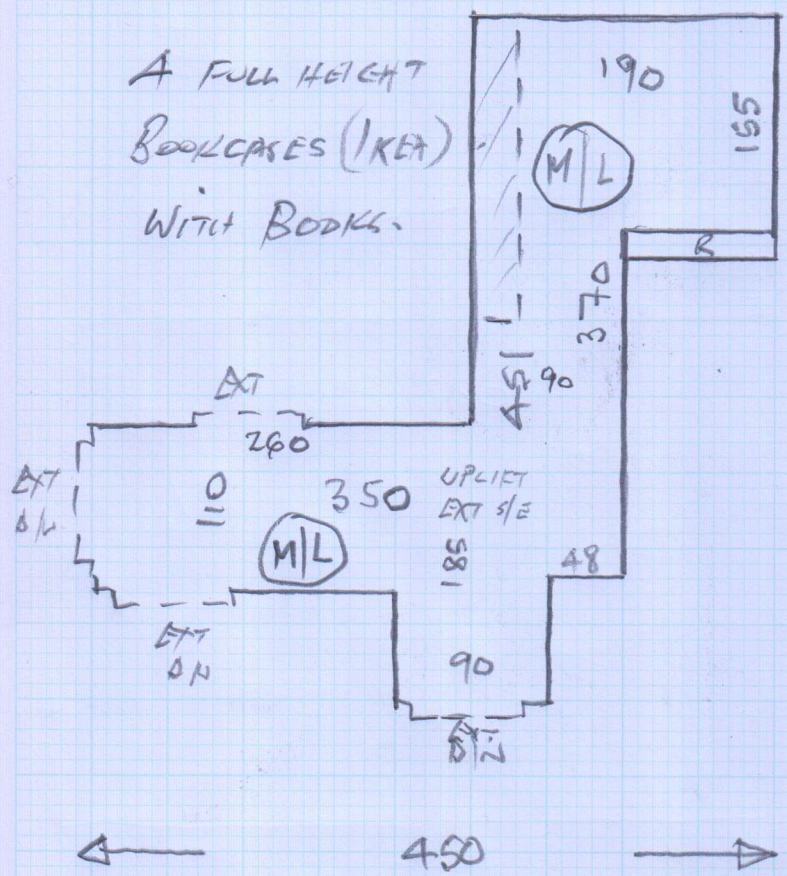 4 FULL HEIGHT
BOOKCASES (IKEA)
WITH BOOKS.
190
155
M|L
R
370
451
90
EXT
260
EXT
D/N
110
350
UPLIFT
EXT S/E
M|L
185
48
EXT
D/N
90
EXT
D/N
450